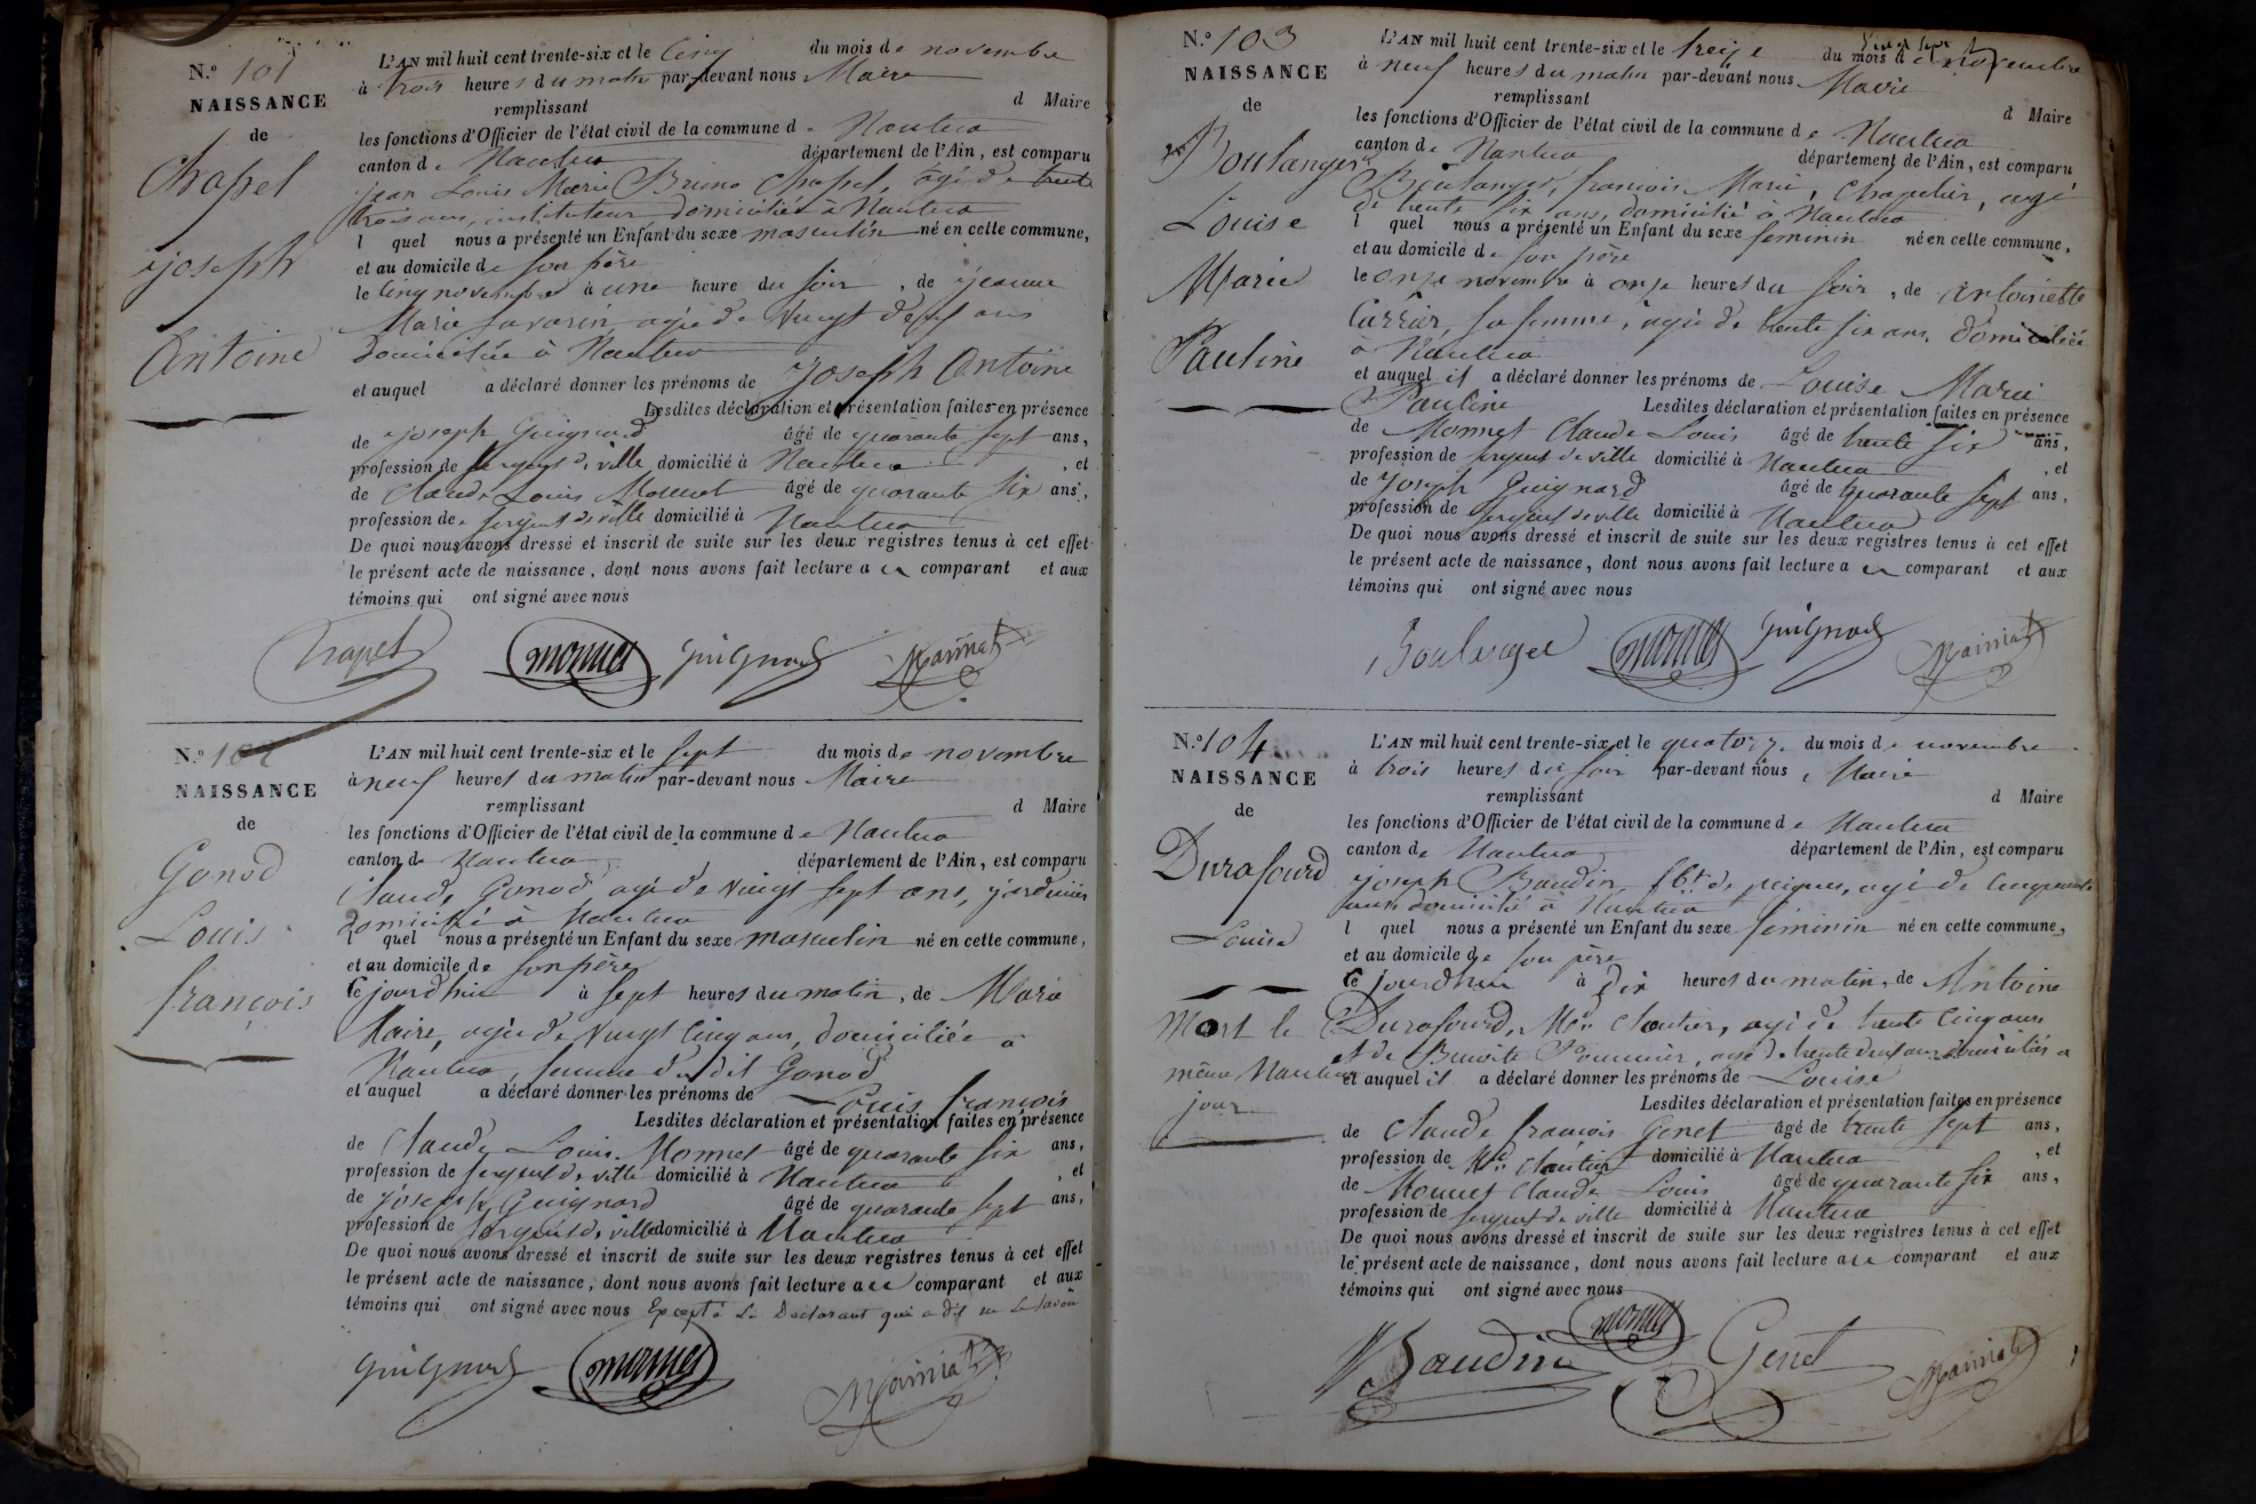 N.º 101
NAISSANCE
de
Chapel
Joseph
Antoine
L'AN mil huit cent trente-six et le cinq du mois de novembre
à trois heures du matin par-devant nous Maire
remplissant d Maire
les fonctions d'Officier de l'état civil de la commune de Nantua
canton de Nantua département de l'Ain, est comparu
Jean Louis Marie Bruno Chapel, âgé de trente
trois ans, instituteur, domicilié à Nantua
l quel nous a présenté un Enfant du sexe masculin né en cette commune,
et au domicile de son père
le cinq novembre à une heure du soir, de Jeanne
Marie Savarin agée de vingt neuf ans
domiciliée à Nantua
et auquel a déclaré donner les prénoms de Joseph Antoine
Lesdites déclaration et présentation faites en présence
de Joseph Guignard âgé de quarante sept ans,
profession de sergent de ville domicilié à Nantua, et
de Claude Louis Monnet âgé de quarante six ans,
profession de sergent de ville domicilié à Nantua
De quoi nous avons dressé et inscrit de suite sur les deux registres tenus à cet effet
le présent acte de naissance, dont nous avons fait lecture a ce comparant et aux
témoins qui ont signé avec nous
Chapel monnet Guignard Mainiat
N.º 102
NAISSANCE
de
Gonod
Louis
françois
L'AN mil huit cent trente-six et le sept du mois de novembre
à neuf heures du matin par-devant nous Maire
remplissant d Maire
les fonctions d'Officier de l'état civil de la commune de Nantua
canton de Nantua département de l'Ain, est comparu
Claude Gonod agé de vingt sept ans, jardinier
domicilié à Nantua
l quel nous a présenté un Enfant du sexe masculin né en cette commune,
et au domicile de son père
Ce jourd'hui à sept heures du matin, de Marie
Maire, agée de vingt cinq ans, domiciliée à
Nantua, femme du dit Gonod
et auquel a déclaré donner les prénoms de Louis françois
Lesdites déclaration et présentation faites en présence
de Claude Louis Monnet âgé de quarante six ans,
profession de sergent de ville domicilié à Nantua, et
de Joseph Guignard âgé de quarante sept ans,
profession de sergent de ville domicilié à Nantua
De quoi nous avons dressé et inscrit de suite sur les deux registres tenus à cet effet
le présent acte de naissance, dont nous avons fait lecture a ce comparant et aux
témoins qui ont signé avec nous Excepté le Déclarant qui a dit ne le savoir
Guignard monnet Mainiat
N.º 103
NAISSANCE
de
Boulanger
Louise
Marie
Pauline
L'AN mil huit cent trente-six et le treize du mois de novembre
à neuf heures du matin par-devant nous Maire
remplissant d Maire
les fonctions d'Officier de l'état civil de la commune de Nantua
canton de Nantua département de l'Ain, est comparu
Boulanger, françois Marie, Chapelier, agé
de trente six ans, domicilié à Nantua
l quel nous a présenté un Enfant du sexe feminin né en cette commune,
et au domicile de son père
le onze novembre à onze heures du soir, de Antoinette
Carrier, sa femme, agée de trente six ans, domiciliée
à Nantua
et auquel il a déclaré donner les prénoms de Louise Marie
Pauline Lesdites déclaration et présentation faites en présence
de Monnet Claude Louis âgé de trente six ans,
profession de sergent de ville domicilié à Nantua, et
de Joseph Guignard âgé de quarante sept ans,
profession de sergent de ville domicilié à Nantua
De quoi nous avons dressé et inscrit de suite sur les deux registres tenus à cet effet
le présent acte de naissance, dont nous avons fait lecture a ce comparant et aux
témoins qui ont signé avec nous
Boulanger monnet Guignard Mainiat
N.º 104
NAISSANCE
de
Durafourd
Louise
Mort le
même
jour
L'AN mil huit cent trente-six et le quatorze du mois de novembre
à trois heures du soir par-devant nous Maire
remplissant d Maire
les fonctions d'Officier de l'état civil de la commune de Nantua
canton de Nantua département de l'Ain, est comparu
Joseph Baudin, fbt de peignes, agé de cinquante
ans domicilié à Nantua
l quel nous a présenté un Enfant du sexe féminin né en cette commune,
et au domicile de son père
Ce jourd'hui à dix heures du matin, de Antoine
Durafourd, agé de trente cinq ans
et de Benoite Pommier, agée de trente deux ans domiciliés à
Nantua et auquel il a déclaré donner les prénoms de Louise
Lesdites déclaration et présentation faites en présence
de Claude françois Genet âgé de trente sept ans,
profession de domicilié à Nantua, et
de Monnet Claude Louis âgé de quarante six ans,
profession de sergent de ville domicilié à Nantua
De quoi nous avons dressé et inscrit de suite sur les deux registres tenus à cet effet
le présent acte de naissance, dont nous avons fait lecture a ce comparant et aux
témoins qui ont signé avec nous
Baudin monnet Genet Mainiat